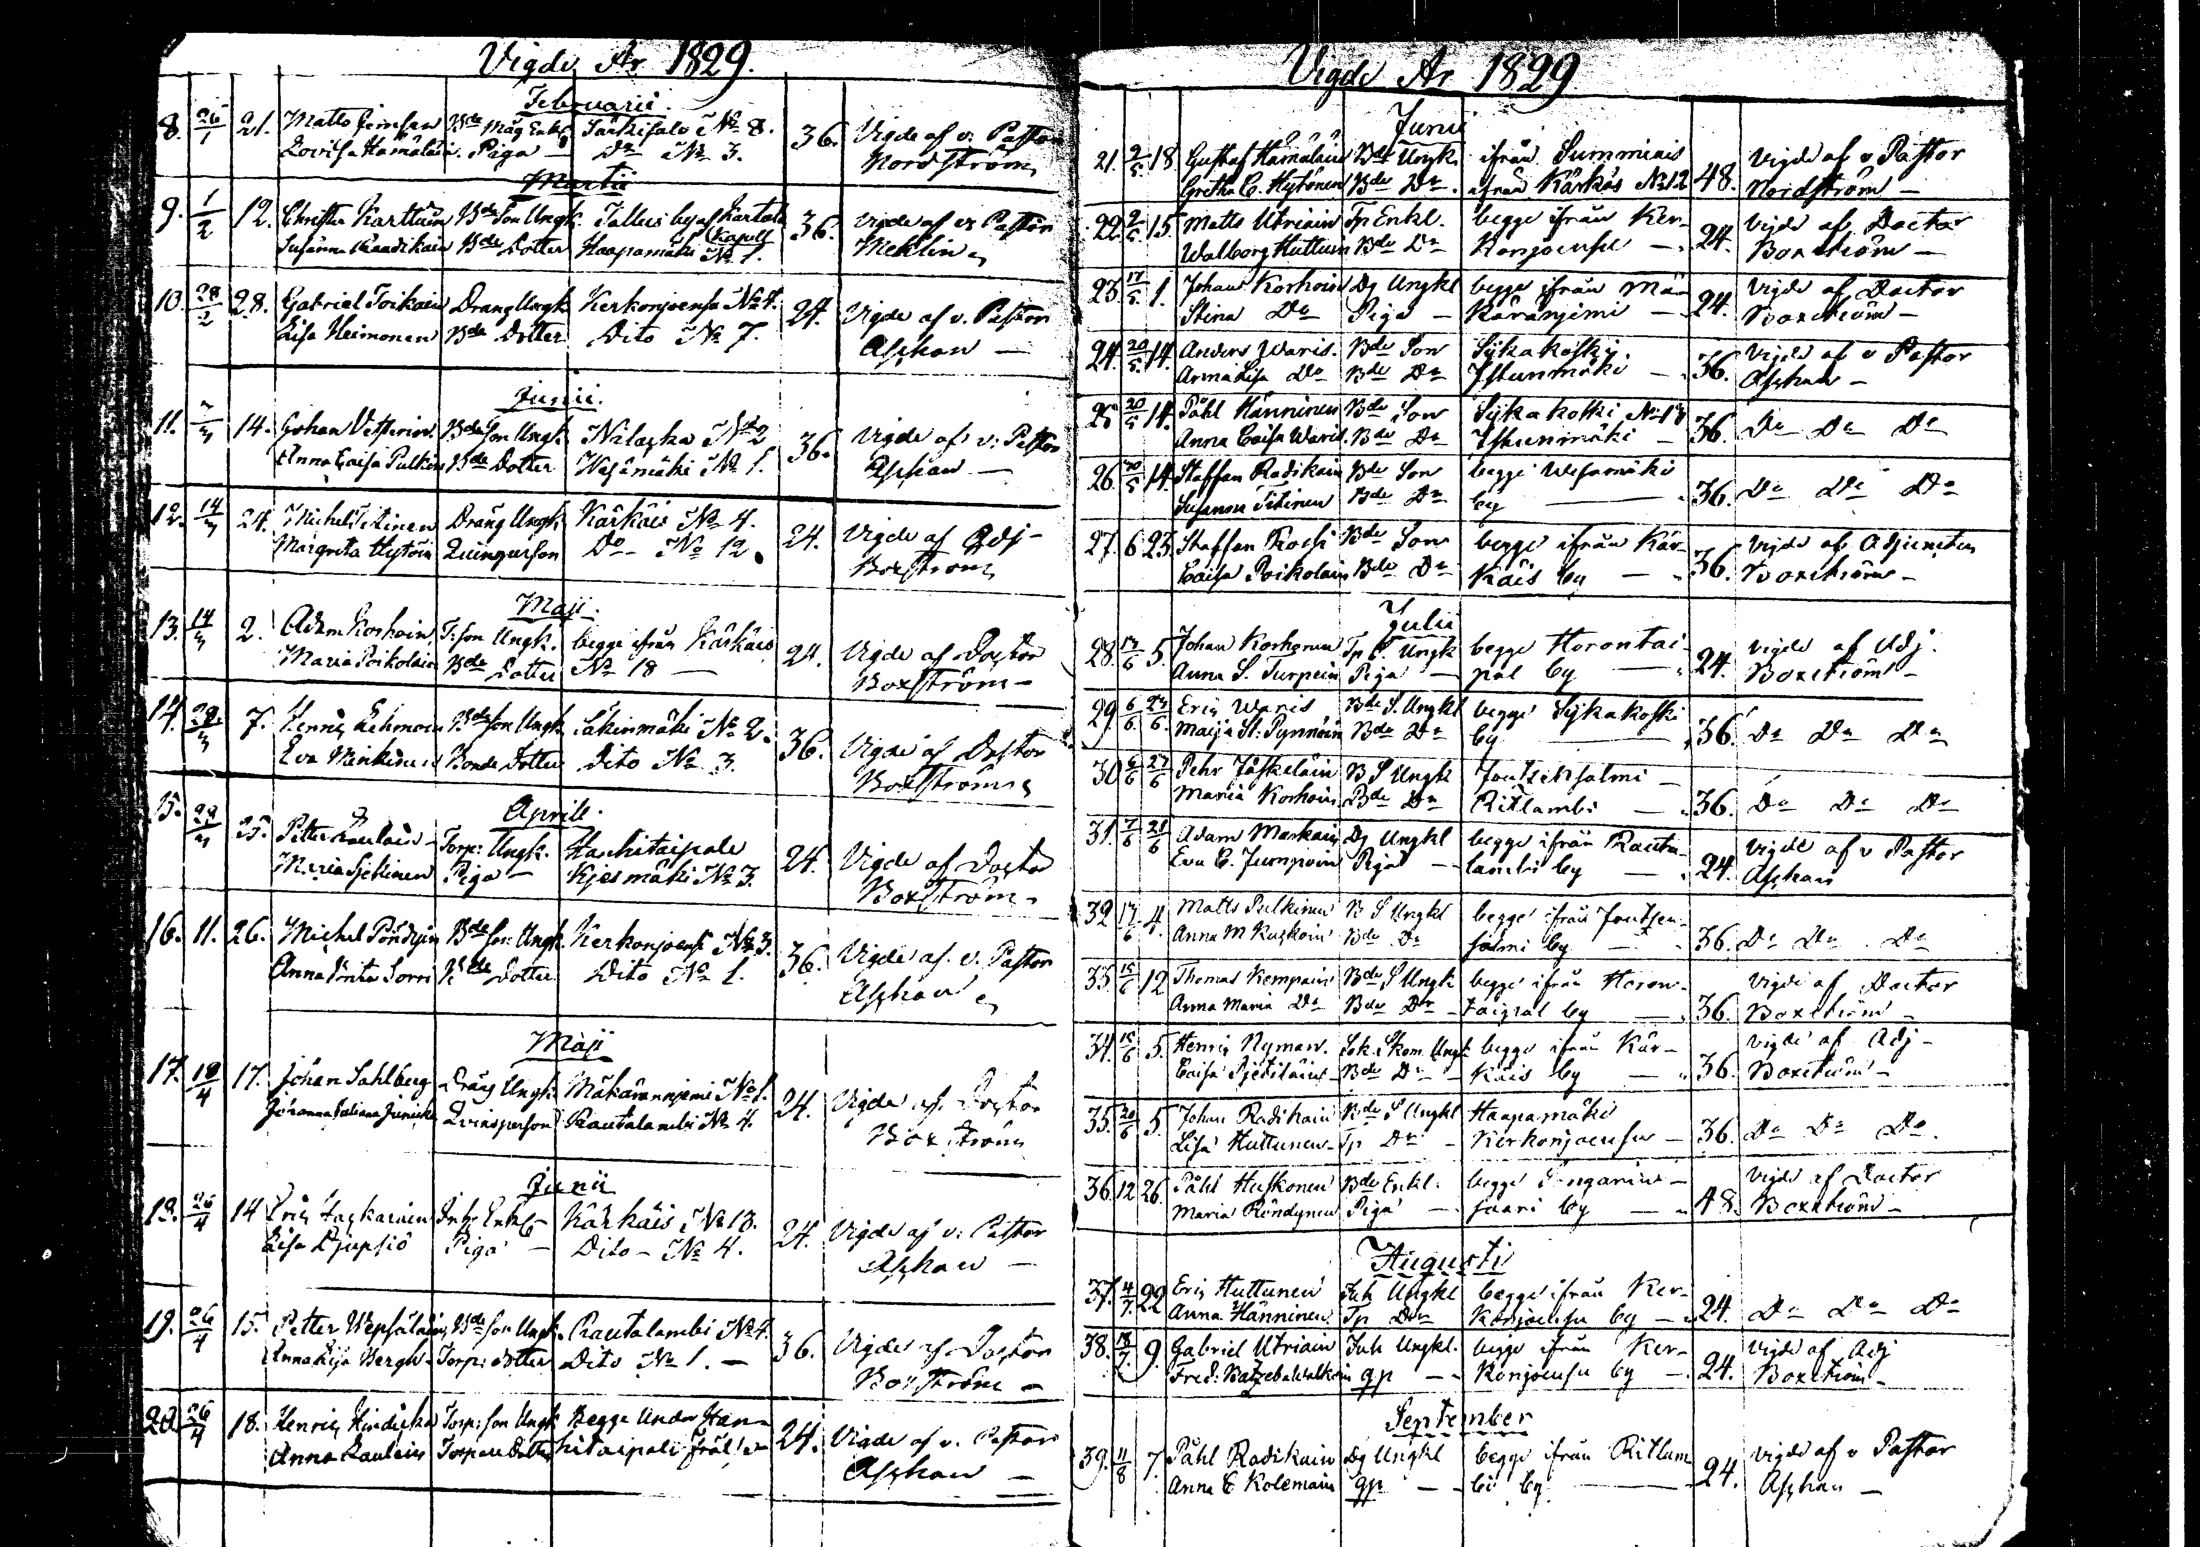 Vigde År 1829.
Februarii.
8. 26/1 21. Matts Jernsen Bde Måg Enkl Särkisalo No 8. 36. Vigde af v. Pastor
Lovisa Hämäläin. Piga — Do No 3. Nordström
Martii
9. 1/2 12. Christer Karttuin Bde Son Ungk. Tallus by af Kartula 36. Vigde af v Pastor
Kapell
Susanna Raadikain Bde Dotter Haapamäki No 1. Mehlin
10. 28/2 28. Gabriel Toikain Dräng Ungk Kerkonjoensu No 4. 24. Vigde af v. Pastor
Lisa Heimonen Bde Dotter Dito No 7. Aschan —
Junii.
11. 14. Johan Vesterin. Bde Son Ungk. Närkäis No 2 36. Vigde af v. Pastor
Anna Caisa Pulkin Bde Dotter Wesamäki No 1. Aschan —
12. 14/3 24. Michel Titinen Dräng Ungk Kärkäis No 4. 24. Vigde af Adj-
Margreta Hytöin Quinsperson Do — No 12. Boxström
Maji.
13. 14/3 2. Adam Korhoin T: Son Ungk. begge ifrån Kärkäis 24. Vigde af Doctor
Maria Poikolain Bde Dotter No 18 — Boxström —
14. 29/3 7. Henric Lehmoin Bde Son Ungk Säkinmäki No 2. 36. Vigde af Doctor
Eva Minkinen Bonde Dotter Dito No 3. Boxström
Aprill.
15. 29/3 25. Petter Raulain — Torp: Ungk. Hankitaipale 24. Vigde af Doctor
Maria Tjetlinen Piga — Kjesmäki No 3. Boxström
16. 11. 26. Michel Pöndyin Bde Son Ungk. Kerkonjoensu No 3. 36. Vigde af v. Pastor
Anna Brita Sorri Bde Dotter Dito No 1. Aschan
Maji
17. 19/4 17. Johan Sahlberg Dräng Ungk. Mäkärännjemi No 1. 24. Vigde af Doctor
Johanna Juliana Qvinsperson Rautalambi No 4. Boxström
Junii
18. 26/4 14 Eric Jaskarinen Inh: Enkl — Kärkäis No 13. 24. Vigde af v. Pastor
Lisa Djupsjö Piga — Dito — No 4. Aschan —
19. 26/4 15. Petter Wepsäläin Bde Son Ungk. Rautalambi No 4. 36. Vigde af Doctor
Anna Lisa Bergh — Torp: dotter Dito No 1. — Boxström —
20. 26/4 18. Henric Hindicka Torp: Son Ungk Begge Under Han- 24. Vigde af v. Pastor
Anna Raulain Torpare Dotter kitaipale Aschan —
Vigde År 1829
Junii
21. 2/5 18 Gustaf Hämäläin Bde Ungk. ifrån Summiais 48. Vigde af v Pastor
Gretha C. Hytönen Bde Dr. ifrån Kärkäs No 12 Nordström —
22. 2/5 15. Matts Utriain Tp Enkl. begge ifrån Ker- 24. vigde af Doctor
Walborg Huttuin Bde Dr konjoensu — Boxström —
23. 17/5 1. Johan Korhoin Dg Ungkl begge ifrån Mä- 24. Vigde af Doctor
Stina Do Piga — käränjemi — Boxström —
24. 20/5 14. Anders Waris. Bde Son Sykäkoski. 36. Vigde af v Pastor
Anna Lisa Do Bde Dr Istunmäki — Aschan —
25 20/5 14. Påhl Hänninen Bde Son Sykäkoski No 18 36. Do Do Do
Anna Caisa Waris. Bde Dr Istunmäki —
26. 20/5 14. Staffan Radikain Bde Son begge Wesamäki 36. Do Do Do
Susanna Titinen Bde Dr by —
27. 6 23. Staffan Rossi Bde Son begge ifrån Kär- 36. Vigde af Adjuncten
Caisa Poikolain Bde Dr käis by — Boxström —
Julii
28. 13/6 5. Johan Korhonen Tp S. Ungk begge Horontai- 24. vigde af Adj.
Anna S. Turpein Piga — pal by — Boxström —
29. 6/6 27/6. Eric Waris Bde S. Ungkl begge Sykäkoski 36. Do Do Do
Maija St. Pynnöin Bde Dr by —
30 6/6 27/6 Pehr Jäskeläin B S Ungk Joutsensalmi — 36. Do Do Do
Maria Korhoin Bde Dr Ritlambi —
31. 7/6 21/6 Adam Markain Dg Ungkl begge ifrån Rauta- 24. vigde af v Pastor
Eva C. Jumpoin Piga — lambi by — Aschan
32 17/6 4. Matts Pulkinen B S Ungkl begge ifrån Joutsen- 36. Do Do Do
Anna M Kuskoin Bde Dr salmi by —
33. 15/6 12 Thomas Kempain Bde S Ungk begge ifrån Horon- 36. Vigde af Doctor
Anna Maria Do Bde Dr — taipal by — Boxström —
34. 15/6 5. Henric Nyman. Sok: Skom. Ungk begge ifrån Kär- 36. vigde af Adj-
Caisa Tjetiläin — Bde Dr — käis by — Boxström —
35. 20/6 5. Johan Radikain Bde S Ungkl Haapamäki 36. Do Do Do.
Lisa Huttunen — Tp Dr — Kerkonjoensu —
36. 12 26. Påhl Huskonen Bde Enkl. begge — 48. vigde af Doctor
Maria Röndynen Piga — saari by — Boxström —
Augusti
37. 4/7 22 Eric Huttunen Inh Ungkl begge ifrån Ker- 24. Do Do Do
Anna Hänninen Tp Dr konjoensu by —
38. 18/7. 9. Gabriel Utriain Inh Ungkl. begge ifrån Ker- 24. vigde af Adj
Fred. Batzeba Walkoin qp — konjoensu by — Boxström —
September
39. 11/8 7. Påhl Radikain Dg Ungkl begge ifrån Ritlam 24. Vigde af v Pastor
Anna C Kolemain qp — bi by — Aschan —